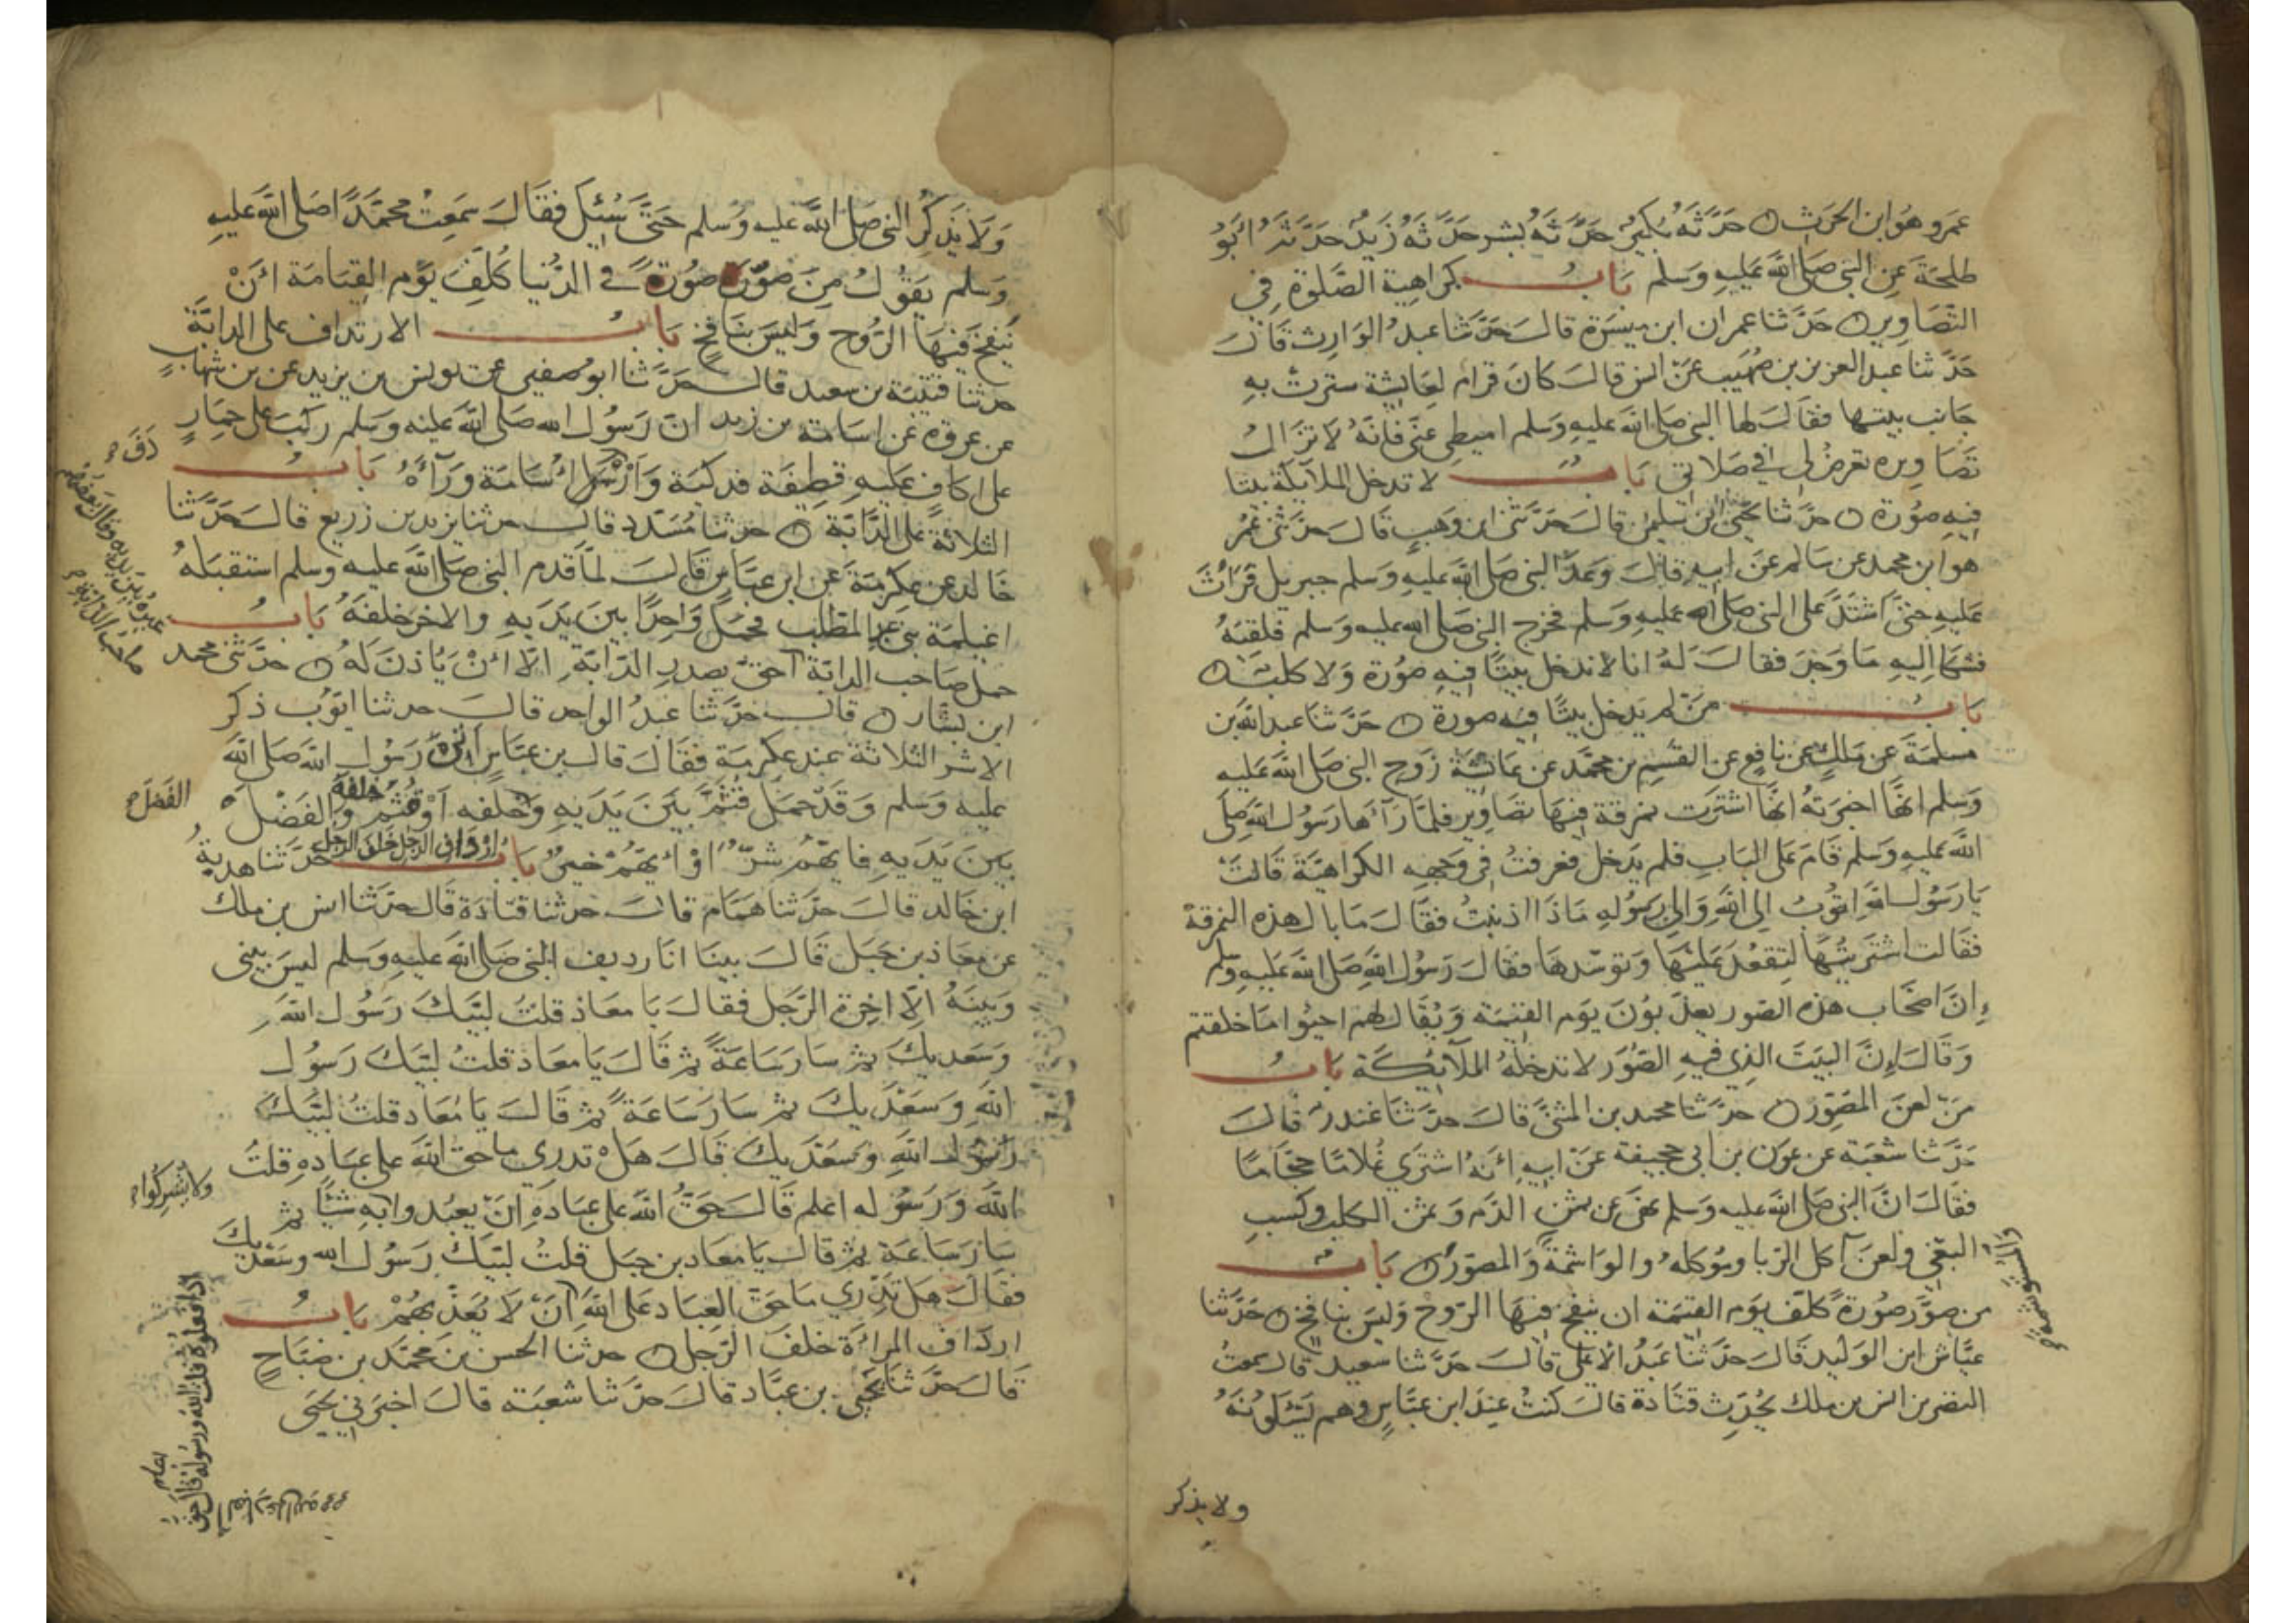 عمرو هو ابن الحرث حدثه بكير حدثه بسر حدثه زيد حدثه ابو
طلحة عن النبي صلى الله عليه وسلم باب كراهية الصلوة في
التصاوير حدثنا عمران ابن ميسرة قال حدثنا عبد الوارث قال
حدثنا عبد العزيز بن صهيب عن انس قال كان قرام لعايشة سترت به
جانب بيتها فقال لها النبي صلى الله عليه وسلم اميطي عني فانه لا تزال
تصاويره تعرض لي في صلاتي باب لا تدخل الملآيكة بيتا
فيه صورة حدثنا يحيى ابن سليمن قال حدثني ابن وهب قال حدثني عمر
هو ابن محمد عن سالم عن ابيه قال وعد النبي صلى الله عليه وسلم جبريل فراث
عليه حتى اشتد على النبي صلى الله عليه وسلم فخرج النبي صلى الله عليه وسلم فلقيه
فشكا اليه ما وجد فقال له انا لا ندخل بيتا فيه صورة ولا كلب
باب من لم يدخل بيتا فيه صورة حدثنا عبد الله بن
مسلمة عن ملك عن نافع عن القسم بن محمد عن عائشة زوج النبي صلى الله عليه
وسلم انها اخبرته انها اشترت نمرقة فيها تصاوير فلما رآها رسول الله صلى
الله عليه وسلم قام على الباب فلم يدخل فعرفت في وجهه الكراهية قالت
يا رسول الله اتوب الى الله والى رسوله ماذا اذنبت فقال ما بال هذه النمرقة
فقالت اشتريتها لتقعد عليها وتوسدها فقال رسول الله صلى الله عليه وسلم
إن اصحاب هذه الصور يعذبون يوم القيمة ويقال لهم احيوا ما خلقتم
وقال إن البيت الذي فيه الصور لا تدخله الملآيكة باب
من لعن المصور حدثنا محمد بن المثنى قال حدثنا غندر قال
حدثنا شعبة عن عون بن ابي جحيفة عن ابيه انه اشترى غلاما حجاما
فقال ان النبي صلى الله عليه وسلم نهى عن ثمن الدم وثمن الكلب وكسب
البغي ولعن آكل الربا وموكله والواشمة والمصور باب
والمستوشمة
من صور صورة كلف يوم القيمة ان ينفخ فيها الروح وليس بنافخ حدثنا
عياش ابن الوليد قال حدثنا عبد الاعلى قال حدثنا سعيد قال سمعت
النضر بن انس بن ملك يحدث قتادة قال كنت عند ابن عباس وهم يسئلونه
ولا يذكر
ولا يذكر النبي صلى الله عليه وسلم حتى سئل فقال سمعت محمدا صلى الله عليه
وسلم يقول من صور صورة في الدنيا كلف يوم القيامة ان
ينفخ فيها الروح وليس بنافخ باب الارتداف على الدابة
حدثنا قتيبة بن سعيد قال حدثنا ابو صفين عن يونس بن يزيد عن بن شهاب
عن عروة عن اسامة بن زيد ان رسول الله صلى الله عليه وسلم ركب على حمار
على اكاف عليه قطيفة فدكية واردف اسامة ورآءه باب
دف
الثلاثة على الدابة حدثنا مسدد قال حدثنا يزيد بن زريع قال حدثنا
خالد عن عكرمة عن ابن عباس قال لما قدم النبي صلى الله عليه وسلم استقبله
اغيلمة بني عبد المطلب فحمل واحدا بين يديه والاخر خلفه باب
حمل صاحب الدابة غيره بين يديه وقال بعضهم
صاحب الدابة احق بصدر الدابة الا ان ياذن له حدثني محمد
ابن بشار قال حدثنا عبد الواحد قال حدثنا ايوب ذكر
الاشر الثلاثة عند عكرمة فقال قال بن عباس اتى رسول الله صلى الله
عليه وسلم وقد حمل قثم بين يديه وخلفه او قثم خلفه والفضل
الفضل
بين يديه فايهم شر او ايهم خير باب ارداف الرجل خلف الرجل حدثنا هدبة
ابن خالد قال حدثنا همام قال حدثنا قتادة قال حدثنا انس بن ملك
عن معاذ بن جبل قال بينا انا رديف النبي صلى الله عليه وسلم ليس بيني
وبينه الا اخرة الرحل فقال يا معاذ قلت لبيك رسول الله
وسعديك ثم سار ساعة ثم قال يا معاذ قلت لبيك رسول
الله وسعديك ثم سار ساعة ثم قال يا معاذ قلت لبيك
رسول الله وسعديك قال هل تدري ما حق الله على عباده قلت
الله ورسوله اعلم قال حق الله على عباده ان يعبدوا به شيئا ثم
ولا يشركوا
سار ساعة ثم قال يا معاذ بن جبل قلت لبيك رسول الله وسعديك
فقال هل تدري ما حق العباد على الله ان لا يعذبهم باب
اذا فعلوه قلت الله ورسوله قال حق العباد على الله
ارداف المراة خلف الرجل حدثنا الحسن بن محمد بن صباح
قال حدثنا يحيى بن عباد قال حدثنا شعبة قال اخبرني يحيى